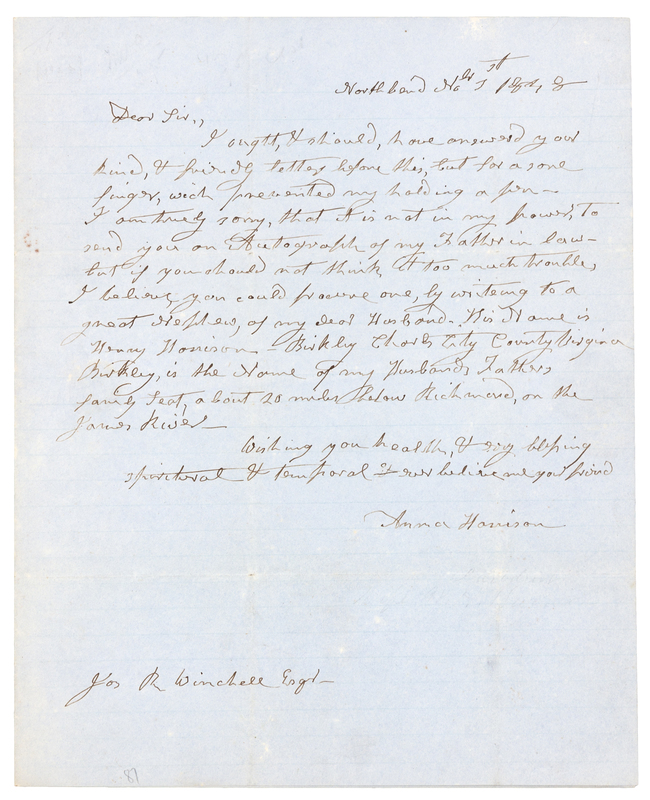 Northbend Nobr 1st 1848
Dear Sir,,
I ought, & should, have answerd your
kind, & friendly letter before this, but for a sore
finger, wich prevented my holding a pen –
I am truely sorry, that it is not in my power, to
send you an Autograph of my Father in law –
but if you should not think it too much trouble,
I believe you could procure one, by writeing to a
great Nephew, of my dear Husband. His Name is
Henry Harrison – Birkley Charls City County Virginia
Birkley, is the Name of my Husbands Fathers
family seat, about 20 miles below Richmond, on the
James River
Wishing you health, & evry blessing
spiritural & temporal ever believe me your friend
Anna Harrison
Jos R Winchell Esqr –
87